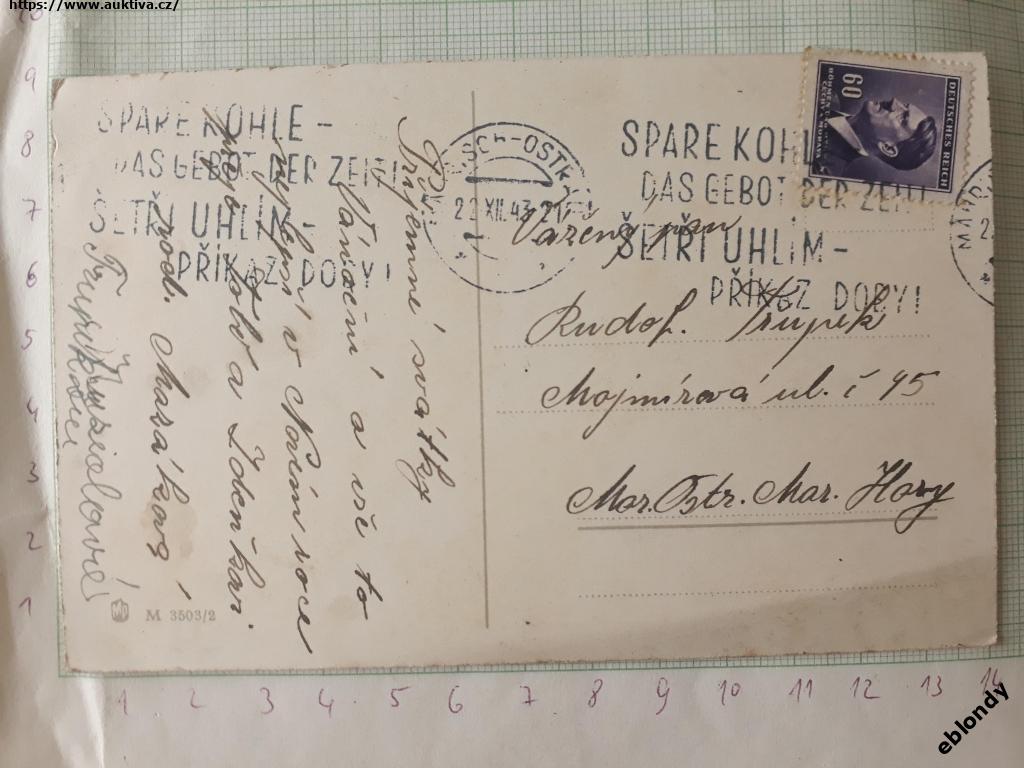 https://www.auktiva.cz/
SPARE KOHLE-
DAS GEBOT DER ZEIT!
ŠETŘI UHLÍM-
PŘÍKAZ DOBY!
MÄHRISCH-OSTRAU
22.XII.43-21
SPARE KOHLE
DAS GEBOT DER ZEIT!
ŠETŘI UHLÍM-
PŘÍKAZ DOBY!
60
DEUTSCHES REICH
BÖHMEN u. MÄHREN
ČECHY a MORAVA
Příjemné svátky
Vánoční a vše to
nejlepší v Novém roce
přeje a Zdeňka.
rod.
Vážený pan
Rudof. Trupik
Mojmírová ul. č 45
Mor. Ostr. Mar. Hory
M 3503/2
10
9
8
7
6
5
4
3
2
1
1 2 3 4 5 6 7 8 9 10 11 12 13 14
eblondy